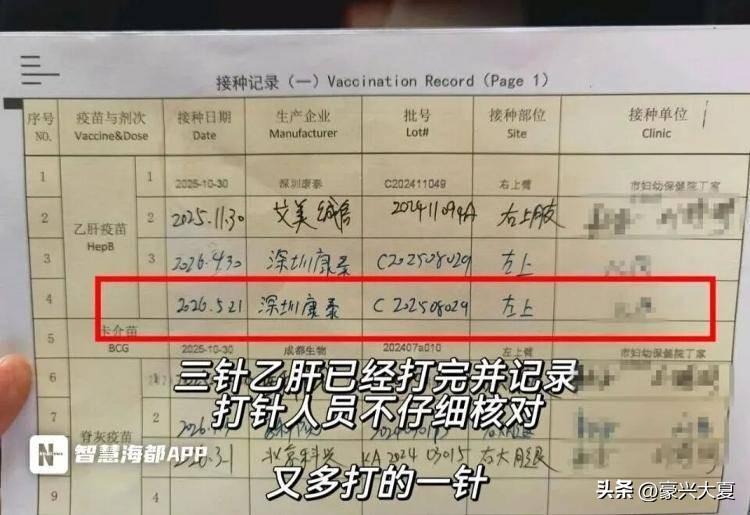 接种记录（一）Vaccination Record (Page 1)
序号 疫苗与剂次 接种日期 生产企业 批号 接种部位 接种单位
NO. Vaccine&Dose Date Manufacturer Lot# Site Clinic
1 1 2025-10-30 深圳康泰 C202411049 右上臂 市妇幼保健院丁家
2 乙肝疫苗 2 2025.11.30 艾美诚信 20241109A 右上肢
HepB
3 3 2026.4.30 深圳康泰 C202508029 左上
4 2026.5.21 深圳康泰 C 202508029 左上
卡介苗
5 BCG 2025-10-30 成都生物 202407a010 左上臂 市妇幼保健院丁家
6 1
三针乙肝已经打完并记录
7 脊灰疫苗 2
打针人员不仔细核对
8 北京 KA 2024 03015 右大腿
智慧海都APP
又多打的一针
9 4
头条 @豪兴大夏